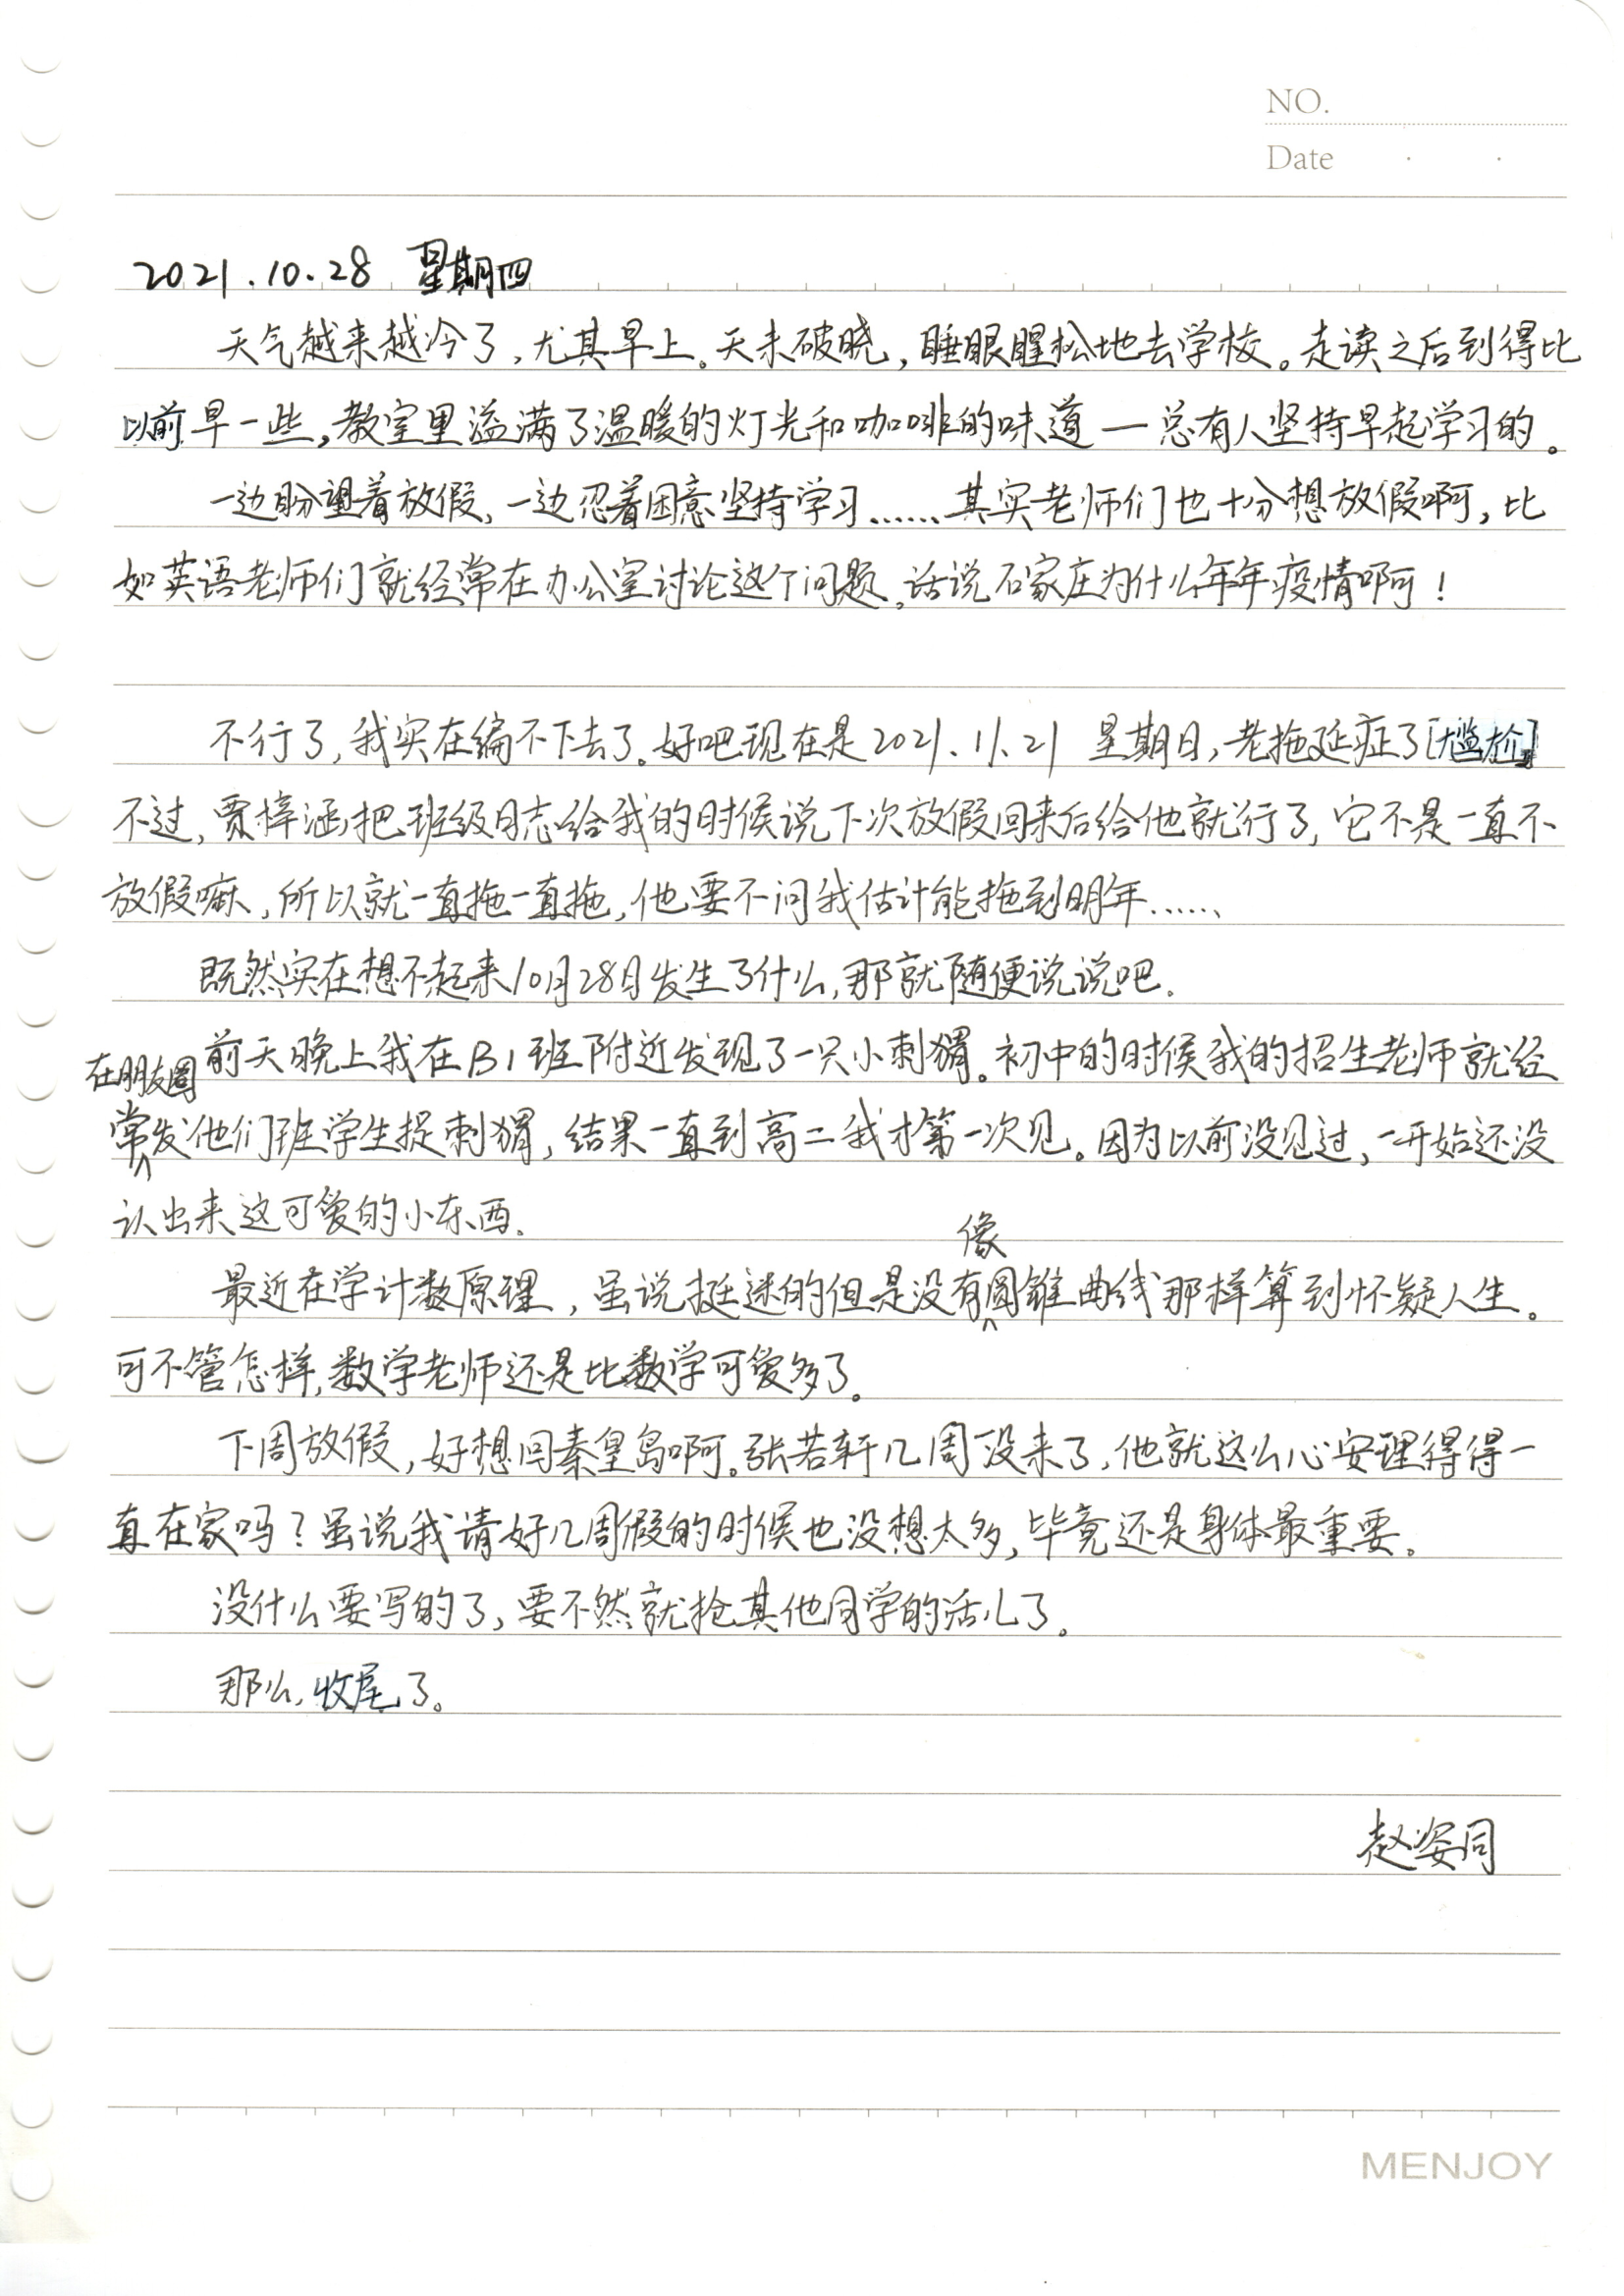 NO.
Date
2021.10.28 星期四
天气越来越冷了,尤其早上。天未破晓,睡眼腥松地去学校。走读之后到得比
以前早一些,教室里溢满了温暖的灯光和咖啡的味道—总有人坚持早起学习的。
一边盼望着放假,一边忍着困意坚持学习……其实老师们也十分想放假啊,比
如英语老师们就经常在办公室讨论这个问题,话说石家庄为什么年年疫情啊!
不行了,我实在编不下去了。好吧现在是2021.11.21 星期日,老拖延症了[尴尬]
不过,贾梓涵把班级日志给我的时候说下次放假回来后给他就行了,它不是一直不
放假嘛,所以就一直拖一直拖,他要不问我估计能拖到明年……
既然实在想不起来10月28日发生了什么,那就随便说说吧.
前天晚上我在B1班附近发现了一只小刺猬。初中的时候我的招生老师就经
在朋友圈
常发他们班学生捉刺猬,结果一直到高二我才第一次见。因为以前没见过,一开始还没
认出来这可爱的小东西.
像
最近在学计数原理,虽说挺迷的但是没有圆锥曲线那样算到怀疑人生。
可不管怎样,数学老师还是比数学可爱多了。
下周放假,好想回秦皇岛啊。张若轩几周没来了,他就这么心安理得得一
直在家吗?虽说我请好几周假的时候也没想太多,毕竟还是身体最重要。
没什么要写的了,要不然就抢其他同学的活儿了。
那么,收尾了。
赵姿同
MENJOY